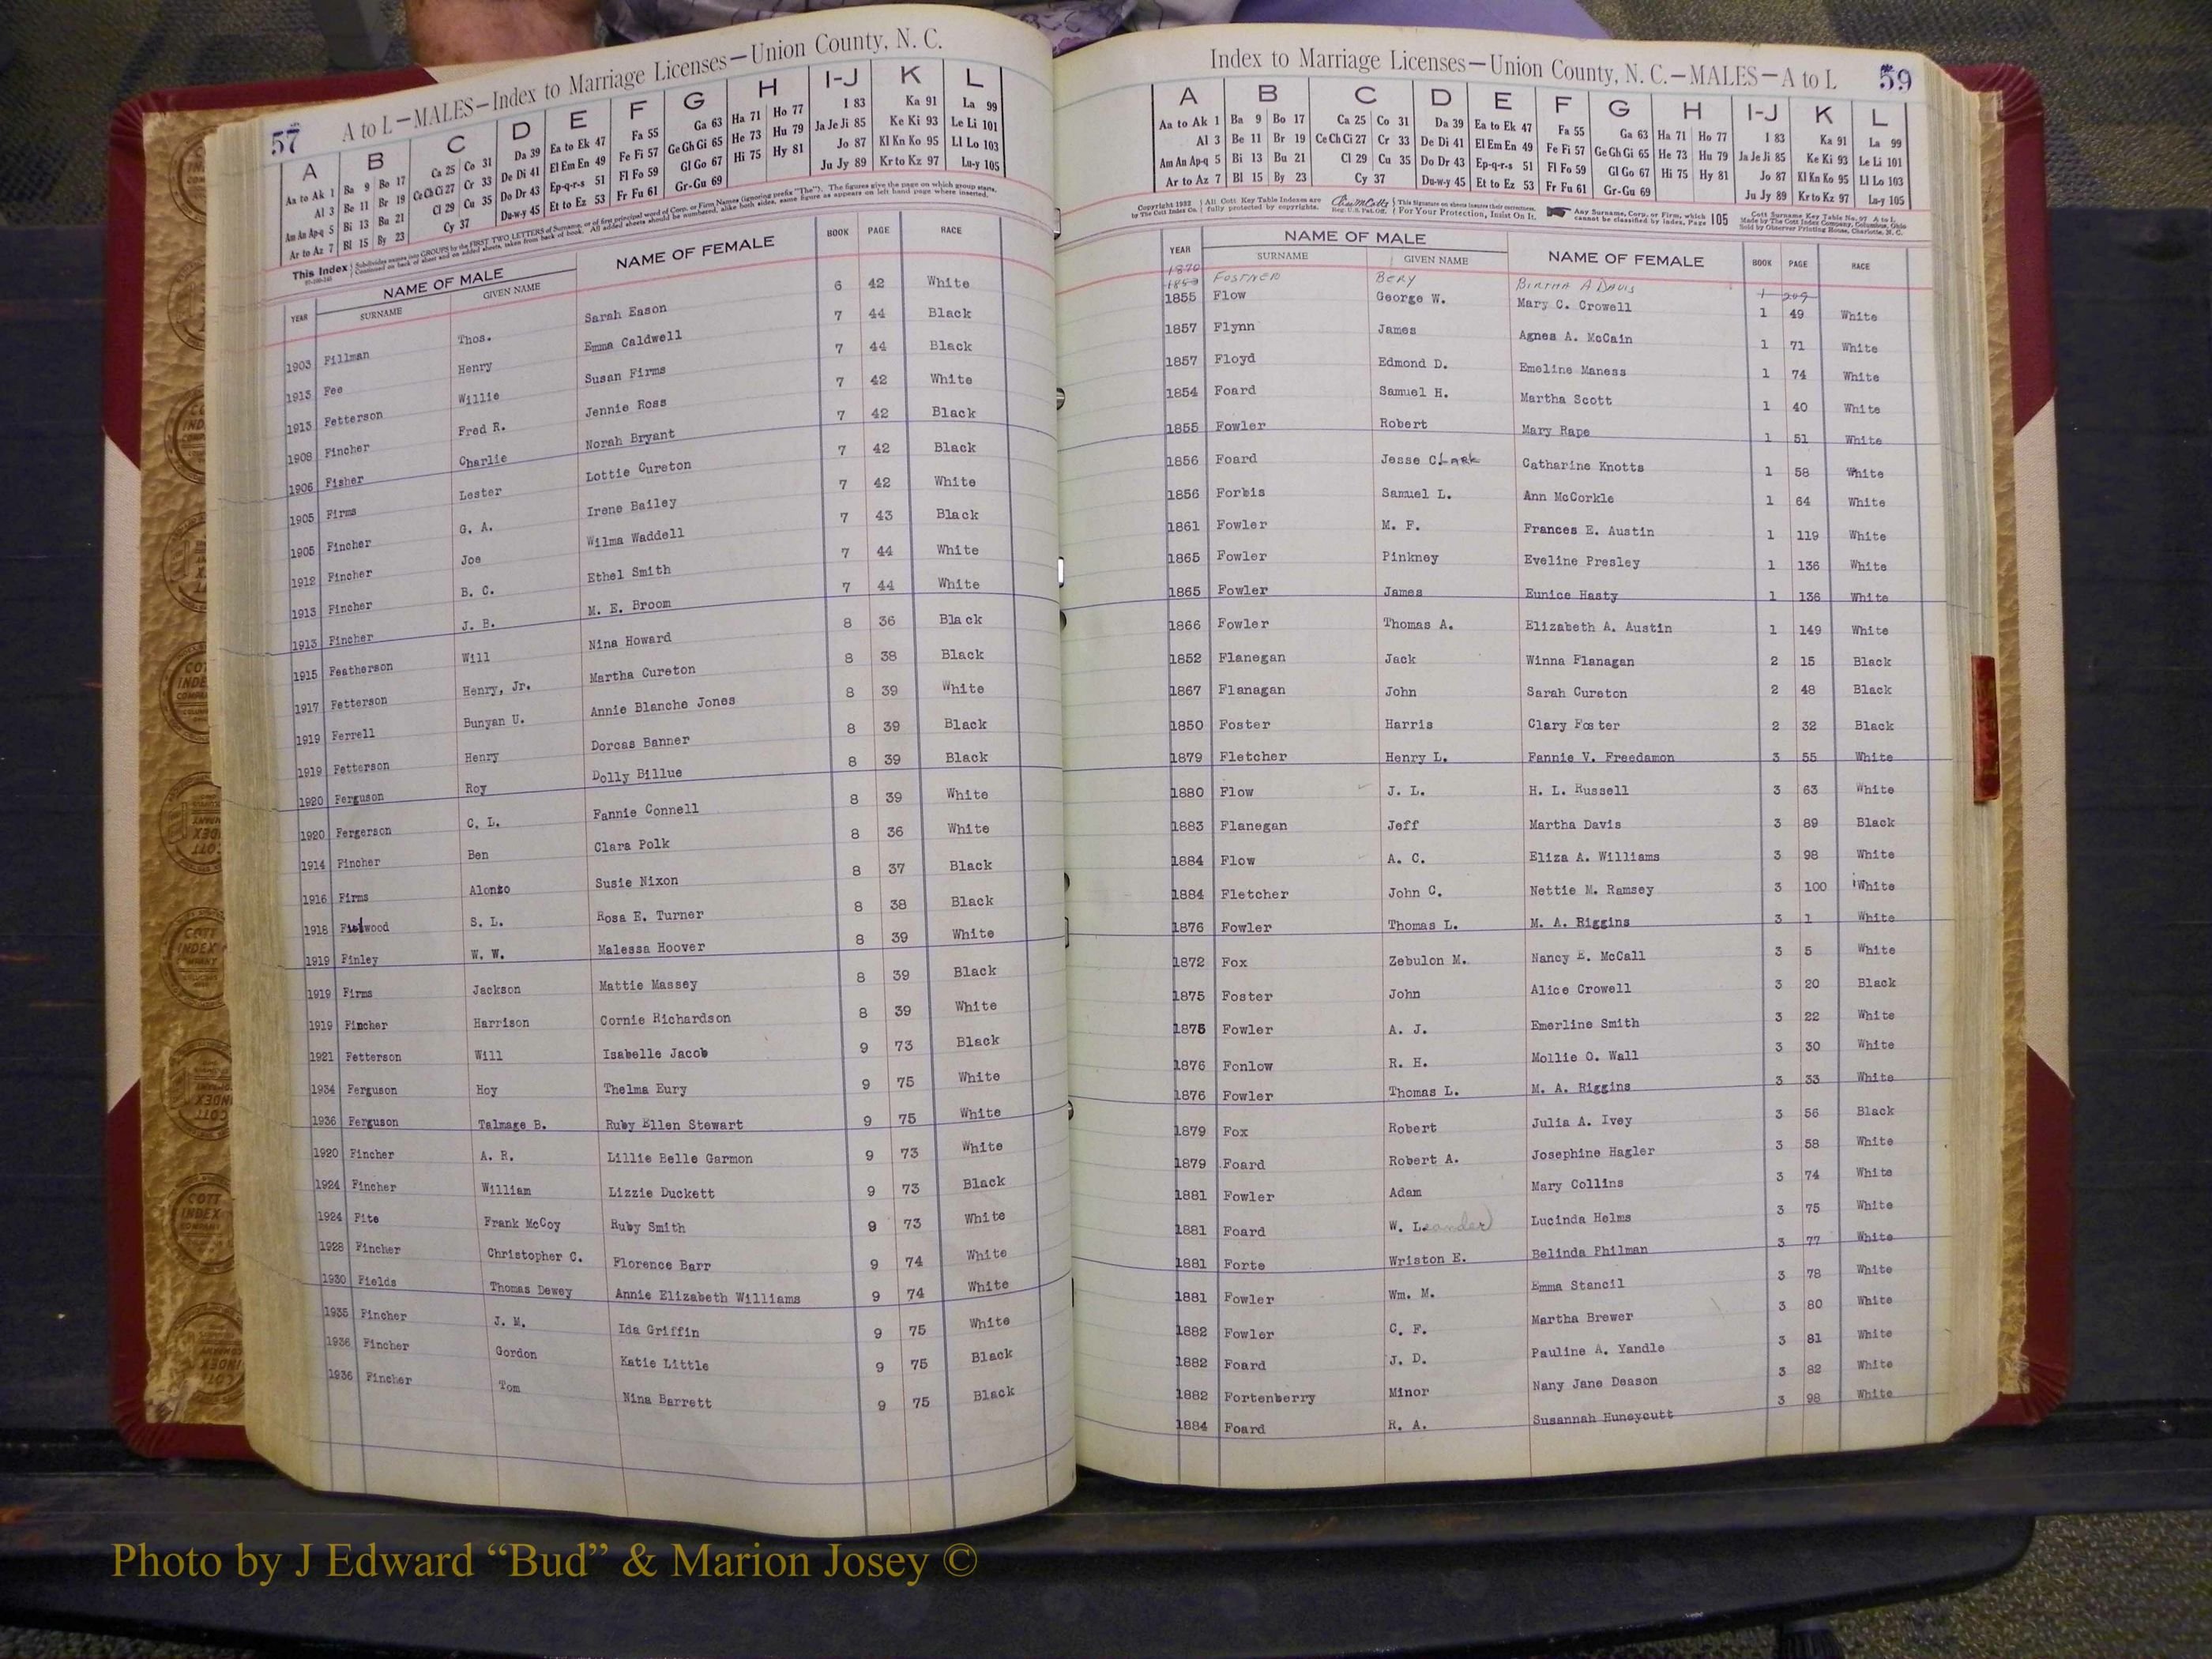 57
A to L—MALES—Index to Marriage Licenses—Union County, N. C.
A B C D E F G H I-J K L
Aa to Ak 1 Ba 9 Bo 17 Ca 25 Co 31 Da 39 Ea to Ek 47 Fa 55 Ga 63 Ha 71 Ho 77 I 83 Ka 91 La 99
Al 3 Be 11 Br 19 Ce Ch Ci 27 Cr 33 De Di 41 El Em En 49 Fe Fi 57 Ge Gh Gi 65 He 73 Hu 79 Ja Je Ji 85 Ke Ki 93 Le Li 101
Am An Ap-q 5 Bi 13 Bu 21 Cl 29 Cu 35 Do Dr 43 Ep-q-r-s 51 Fl Fo 59 Gl Go 67 Hi 75 Hy 81 Jo 87 Kl Kn Ko 95 Ll Lo 103
Ar to Az 7 Bl 15 By 23 Cy 37 Du-w-y 45 Et to Ez 53 Fr Fu 61 Gr-Gu 69 Ju Jy 89 Kr to Kz 97 Lu-y 105
This Index Subdivides names into GROUPS by the FIRST TWO LETTERS of Surname, or of first principal word of Corp. or Firm Names (ignoring prefix "The"). The figures give the page on which group starts.
Continued on back of sheet and on added sheets, taken from back of book. All added sheets should be numbered, alike both sides, same figure as appears on left hand page where inserted.
YEAR NAME OF MALE NAME OF FEMALE BOOK PAGE RACE
SURNAME GIVEN NAME
1903 Fillman Thos. Sarah Eason 6 42 White
1913 Fee Henry Emma Caldwell 7 44 Black
1913 Fetterson Willie Susan Firms 7 44 Black
1908 Fincher Fred R. Jennie Ross 7 42 White
1906 Fisher Charlie Norah Bryant 7 42 Black
1905 Firms Lester Lottie Cureton 7 42 Black
1905 Fincher G. A. Irene Bailey 7 42 White
1912 Fincher Joe Wilma Waddell 7 43 Black
1913 Fincher B. C. Ethel Smith 7 44 White
1913 Fincher J. B. M. E. Broom 7 44 White
1915 Featherson Will Nina Howard 8 36 Black
1917 Fetterson Henry, Jr. Martha Cureton 8 38 Black
1919 Ferrell Bunyan U. Annie Blanche Jones 8 39 White
1919 Fetterson Henry Dorcas Banner 8 39 Black
1920 Ferguson Roy Dolly Billue 8 39 Black
1920 Fergerson C. L. Fannie Connell 8 39 White
1914 Fincher Ben Clara Polk 8 36 White
1916 Firms Alonzo Susie Nixon 8 37 Black
1918 S. L. Rosa E. Turner 8 38 Black
1919 Finley W. W. Malessa Hoover 8 39 White
1919 Firms Jackson Mattie Massey 8 39 Black
1919 Fincher Harrison Cornie Richardson 8 39 White
1921 Fetterson Will Isabelle Jacob 9 73 Black
1934 Ferguson Hoy Thelma Eury 9 75 White
1936 Ferguson Talmage B. Ruby Ellen Stewart 9 75 White
1920 Fincher A. R. Lillie Belle Garmon 9 73 White
1924 Fincher William Lizzie Duckett 9 73 Black
1924 Fite Frank McCoy Ruby Smith 9 73 White
1928 Fincher Christopher C. Florence Barr 9 74 White
1930 Fields Thomas Dewey Annie Elizabeth Williams 9 74 White
1935 Fincher J. M. Ida Griffin 9 75 White
1936 Fincher Gordon Katie Little 9 75 Black
1936 Fincher Tom Nina Barrett 9 75 Black
Index to Marriage Licenses—Union County, N. C.—MALES—A to L 59
A B C D E F G H I-J K L
Aa to Ak 1 Ba 9 Bo 17 Ca 25 Co 31 Da 39 Ea to Ek 47 Fa 55 Ga 63 Ha 71 Ho 77 I 83 Ka 91 La 99
Al 3 Be 11 Br 19 Ce Ch Ci 27 Cr 33 De Di 41 El Em En 49 Fe Fi 57 Ge Gh Gi 65 He 73 Hu 79 Ja Je Ji 85 Ke Ki 93 Le Li 101
Am An Ap-q 5 Bi 13 Bu 21 Cl 29 Cu 35 Do Dr 43 Ep-q-r-s 51 Fl Fo 59 Gl Go 67 Hi 75 Hy 81 Jo 87 Kl Kn Ko 95 Ll Lo 103
Ar to Az 7 Bl 15 By 23 Cy 37 Du-w-y 45 Et to Ez 53 Fr Fu 61 Gr-Gu 69 Ju Jy 89 Kr to Kz 97 Lu-y 105
Copyright 1932 by The Cott Index Co. All Cott Key Table Indexes are fully protected by copyrights. Reg. U.S. Pat. Off. This Signature on sheets insures their correctness. For Your Protection, Insist On It. Any Surname, Corp. or Firm, which cannot be classified by index, Page 105 Cott Surname Key Table No. 97 A to L Made by The Cott Index Company, Columbus, Ohio Sold by Observer Printing House, Charlotte, N. C.
YEAR NAME OF MALE NAME OF FEMALE BOOK PAGE RACE
SURNAME GIVEN NAME
1870 Bery Bertha A Davis 1 209
1855 Flow George W. Mary C. Crowell 1 49 White
1857 Flynn James Agnes A. McCain 1 71 White
1857 Floyd Edmond D. Emeline Maness 1 74 White
1854 Foard Samuel H. Martha Scott 1 40 White
1855 Fowler Robert Mary Rape 1 51 White
1856 Foard Jesse Clark Catharine Knotts 1 58 White
1856 Forbis Samuel L. Ann McCorkle 1 64 White
1861 Fowler M. F. Frances E. Austin 1 119 White
1865 Fowler Pinkney Eveline Presley 1 136 White
1865 Fowler James Eunice Hasty 1 136 White
1866 Fowler Thomas A. Elizabeth A. Austin 1 149 White
1852 Flanegan Jack Winna Flanagan 2 15 Black
1867 Flanagan John Sarah Cureton 2 48 Black
1850 Foster Harris Clary Foster 2 32 Black
1879 Fletcher Henry L. Fannie V. Freedamon 3 55 White
1880 Flow J. L. H. L. Russell 3 63 White
1883 Flanegan Jeff Martha Davis 3 89 Black
1884 Flow A. C. Eliza A. Williams 3 98 White
1884 Fletcher John C. Nettie M. Ramsey 3 100 White
1876 Fowler Thomas L. M. A. Riggins 3 1 White
1872 Fox Zebulon M. Nancy E. McCall 3 5 White
1875 Foster John Alice Crowell 3 20 Black
1875 Fowler A. J. Emerline Smith 3 22 White
1876 Fonlow R. H. Mollie O. Wall 3 30 White
1876 Fowler Thomas L. M. A. Riggins 3 33 White
1879 Fox Robert Julia A. Ivey 3 56 Black
1879 Foard Robert A. Josephine Hagler 3 58 White
1881 Fowler Adam Mary Collins 3 74 White
1881 Foard W. Leander Lucinda Helms 3 75 White
1881 Forte Wriston E. Belinda Philman 3 77 White
1881 Fowler Wm. M. Emma Stancil 3 78 White
1882 Fowler C. F. Martha Brewer 3 80 White
1882 Foard J. D. Pauline A. Yandle 3 81 White
1882 Fortenberry Minor Nany Jane Deason 3 82 White
1884 Foard R. A. Susannah Huneycutt 3 98 White
Photo by J Edward “Bud” & Marion Josey ©